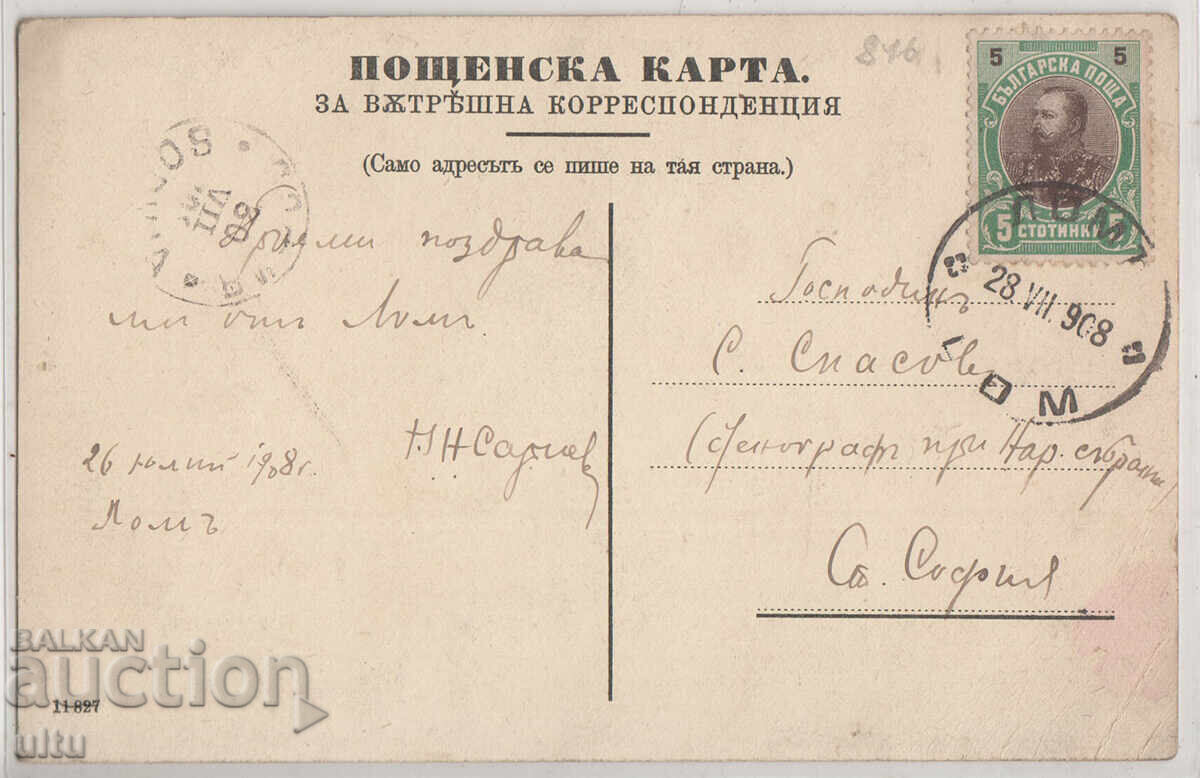 846
ПОЩЕНСКА КАРТА.
ЗА ВѪТРѢШНА КОРРЕСПОНДЕНЦИЯ
(Само адресътъ се пише на тая страна.)
5 5
БЪЛГАРСКА ПОЩА
5 5
СТОТИНКИ
ЛОМЪ
28 VII. 908
LOM
VIII
08
Приеми поздрава
ми отъ Ломъ.
26 юлий 1908 г.
Ломъ
Господинъ
С. Спасовъ
(Стенографъ при Нар. събрание)
Ст. София
BALKAN
auction
11827
ultu